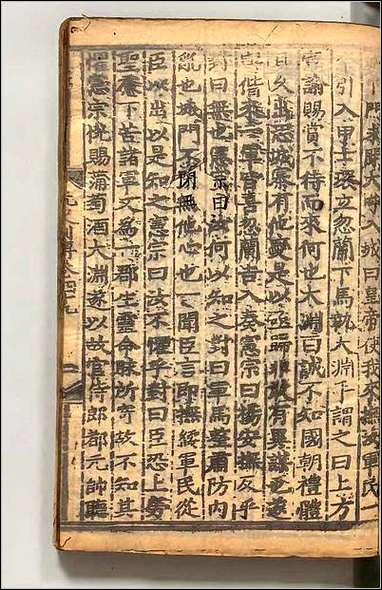 門來開大呼入城曰皇帝使我來撫汝軍民一
引入甲士環立忽蘭下馬執大淵手謂之曰上方
宣諭賜賞不待而來何也大淵曰誠不知國朝禮體
且久出恐城寨有他變是以亟歸非敢有異謀也遂
偕來一軍皆喜忽蘭吉入奏憲宗曰楊安撫反乎
對曰無也憲宗曰汝何以知之對曰軍馬整肅防內
亂也城門不閉無他心也一聞臣言即撫綏軍民從
臣以出以是知之憲宗曰汝不懼乎對曰臣恐上勞
聖慮下苦諸軍又為一郡生靈命脈所寄故不知其
懼憲宗悅賜蒲萄酒大淵遂以故官侍郎都元帥聽